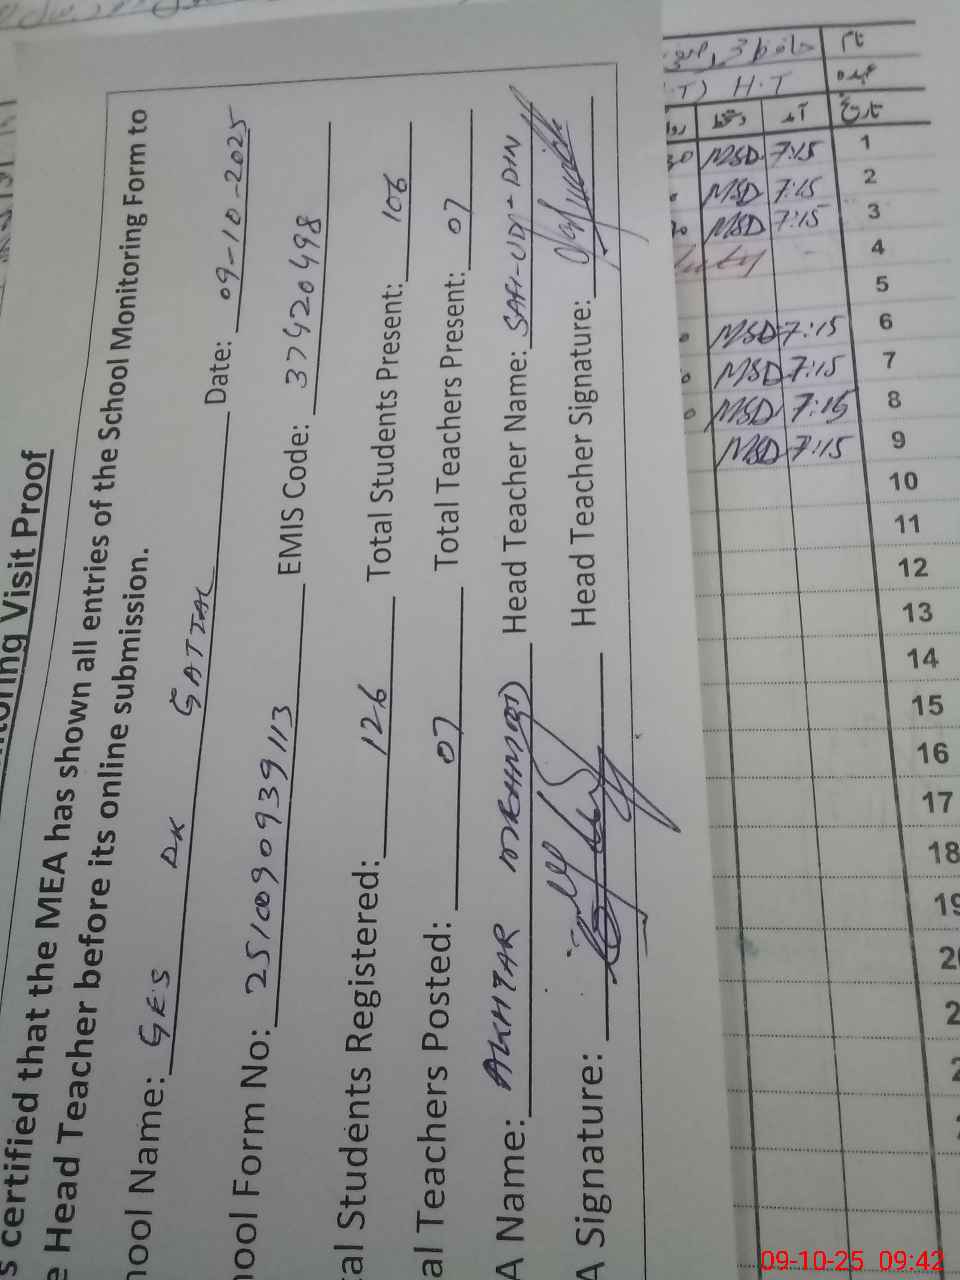 Monitoring Visit Proof
s certified that the MEA has shown all entries of the School Monitoring Form to
e Head Teacher before its online submission.
hool Name: GES DK GATTAL Date: 09-10-2025
hool Form No: 2510090939113 EMIS Code: 37420498
tal Students Registered: 126 Total Students Present: 106
al Teachers Posted: 07 Total Teachers Present: 07
A Name: AKHTAR MEHMOOD Head Teacher Name: SAFI-UD-DIN
A Signature: Head Teacher Signature:
نام
عہدہ H.T
تاریخ آمد دستخط
1 7:15 MSD 30
2 7:15 MSD
3 7:15 MSD
4
5
6 7:15 MSD
7 7:15 MSD
8 7:15 MSD
9 7:15 MSD
10
11
12
13
14
15
16
17
18
19
20
2
2
09-10-25 09:42